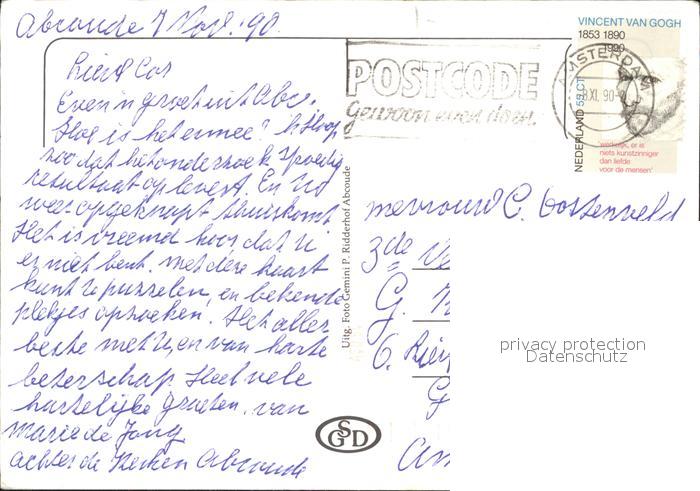 Abcoude 7 Nov. '90.
Lieve Cor
Even 'n groet uit Abc.
Hoe is het ermee? Ik Hoop
zoo dat het onderzoek spoedig
resultaat oplevert. En U
weer opgeknapt thuiskomt
Het is vreemd hoor dat U
er niet bent. Met deze kaart
kunt U puzzelen, en bekende
plekjes opzoeken. Het aller
beste met U, en van harte
beterschap Heel vele
hartelijke groeten. van
Marie de Jong
achter de Kerken Abcoude
Uitg. Foto Gemini P. Ridderhof Abcoude
GSD
POSTCODE
Gewoon even doen.
AMSTERDAM
XI. 90
VINCENT VAN GOGH
1853 1890
1990
NEDERLAND 55 CT
werkelijk, er is
niets kunstzinniger
dan liefde
voor de mensen'
mevrouw C. Oostenveld
3de
G.
6.
G
Am
privacy protection
Datenschutz